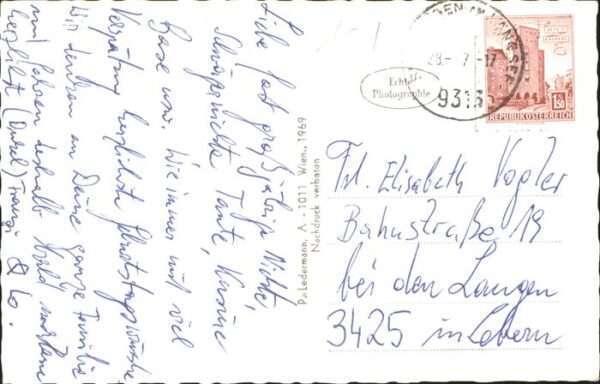 Liebe fast großjährige Nichte,
Schwiegernichte, Tante, Cousine
Base usw. Wie immer mit viel
Verspätung herzlichste Geburtstagswünsche
Wir denken an Deine ganze Familie
und
deshalb bald
herzlichst (Onkel) Franzi & Co.
P. Ledermann, A - 1011 Wien, 1969
Nachdruck verboten
Echte
Photographie
28. - 7 - 17
9313
1.50
REPUBLIK ÖSTERREICH
Frl. Elisabeth Vogler
Bahnstraße 19
bei den Langen
3425 in Lebern